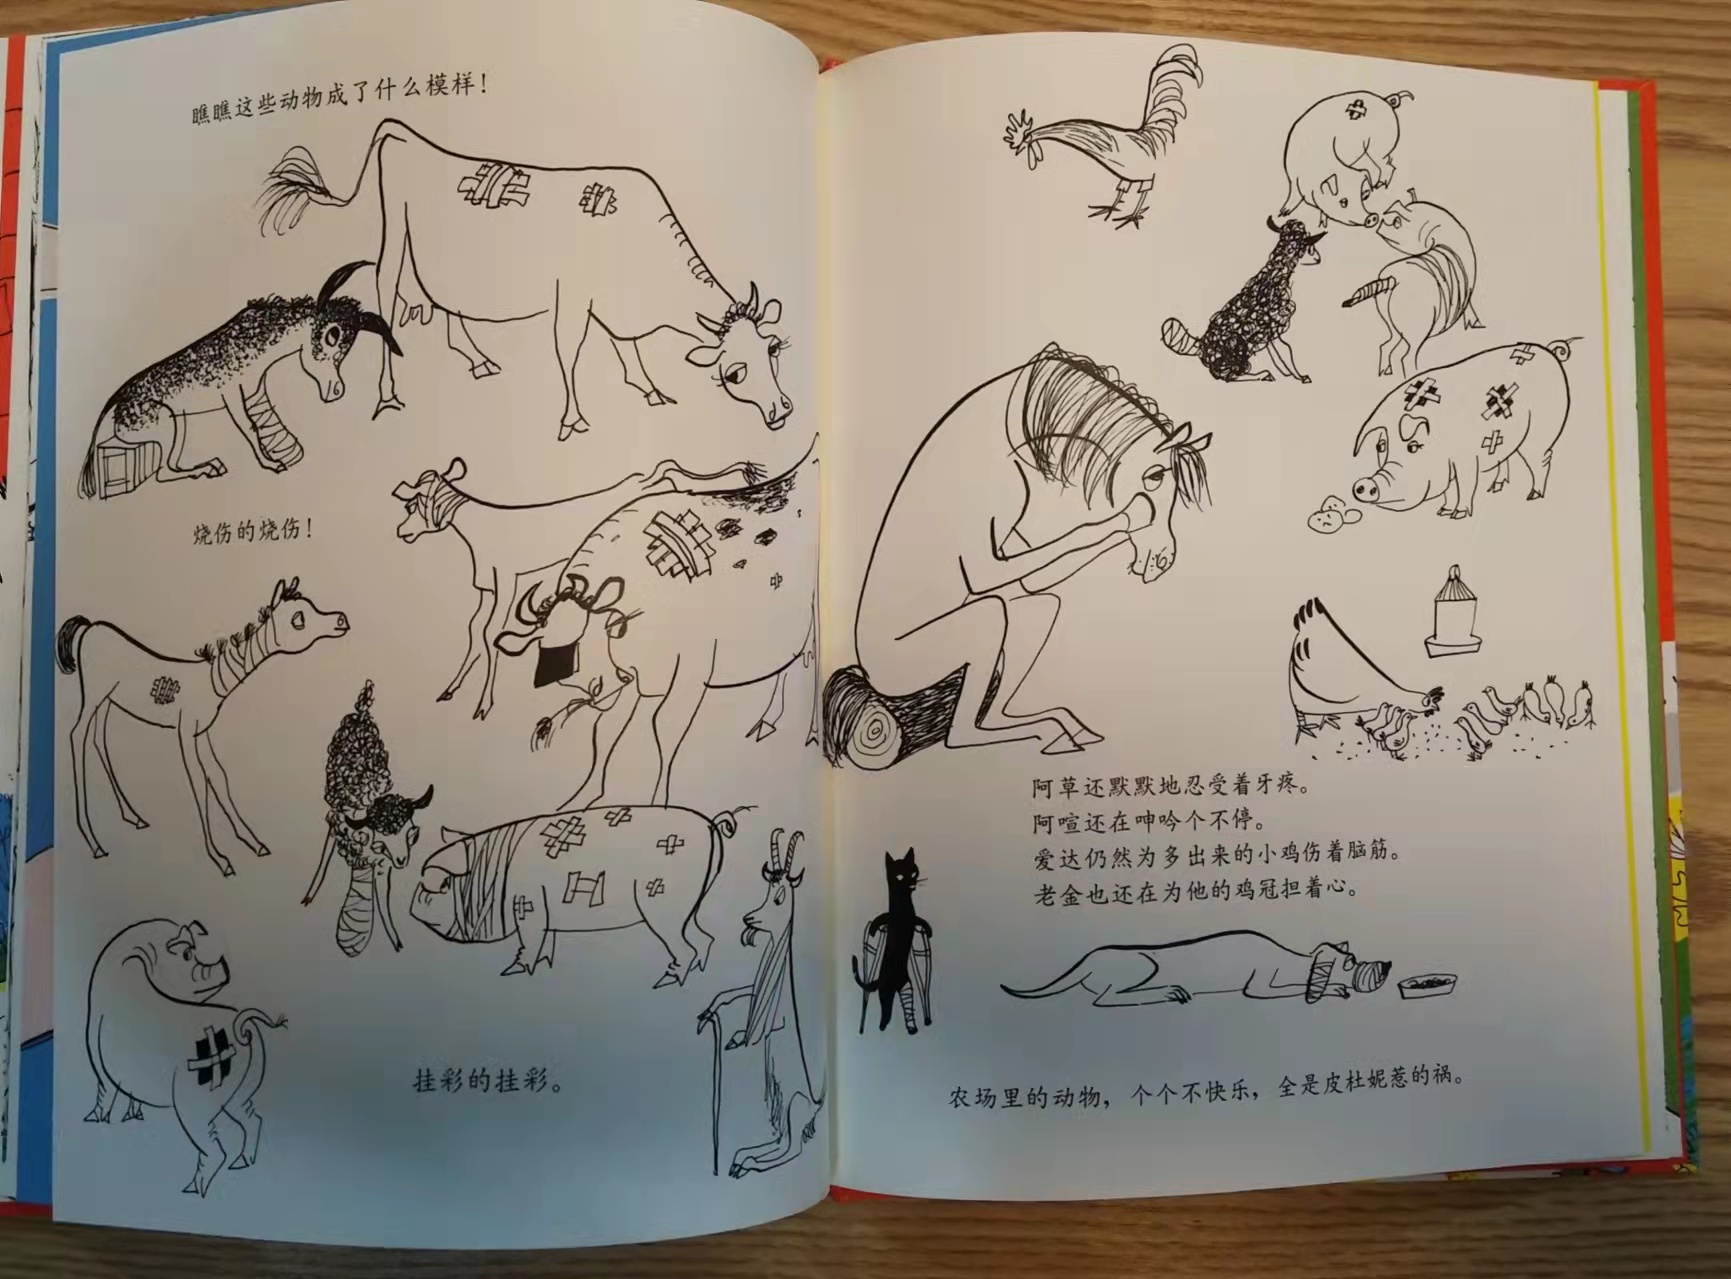 瞧瞧这些动物成了什么模样！
烧伤的烧伤！
挂彩的挂彩。
阿草还默默地忍受着牙疼。
阿喧还在呻吟个不停。
爱达仍然为多出来的小鸡伤着脑筋。
老金也还在为他的鸡冠担着心。
农场里的动物，个个不快乐，全是皮杜妮惹的祸。